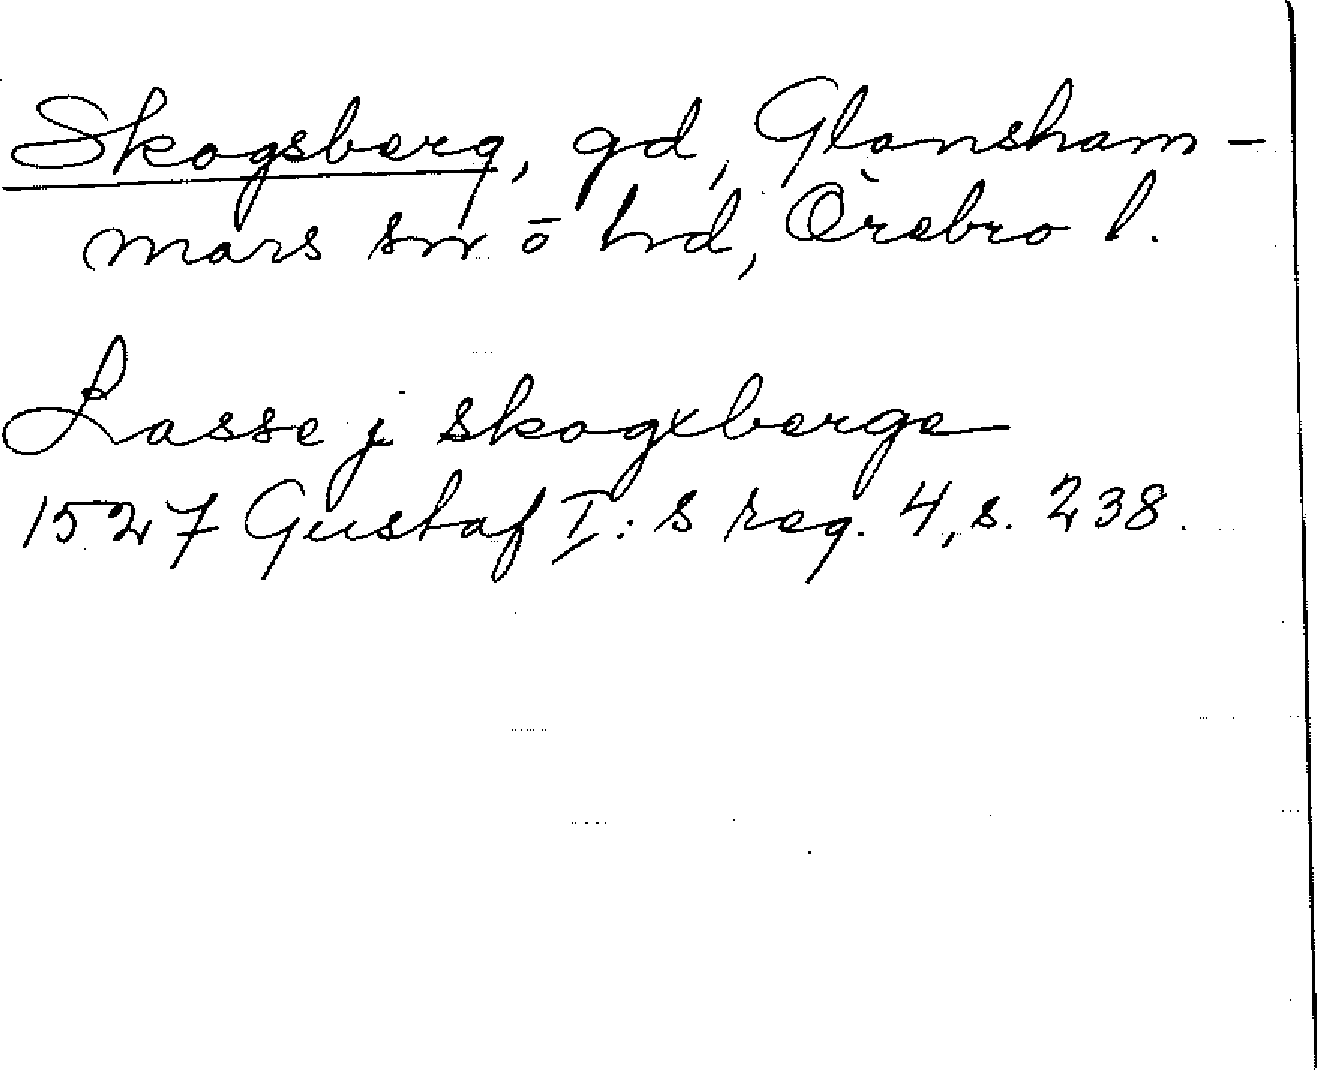 Skogsberg, gd, Glansham-
mars sn ō hd, Örebro l.
Lasse j skogxberge
1527 Gustaf I:s reg. 4, s. 238.